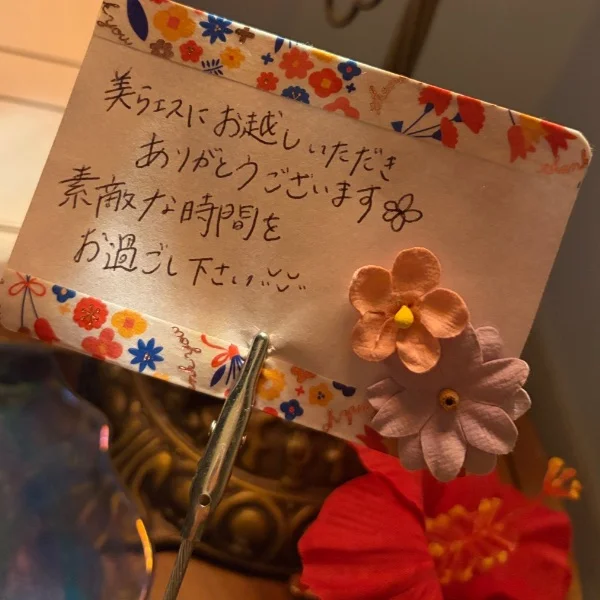 you
美らエスにお越しいただき
ありがとうございます
素敵な時間を
お過ごし下さい
thank
you